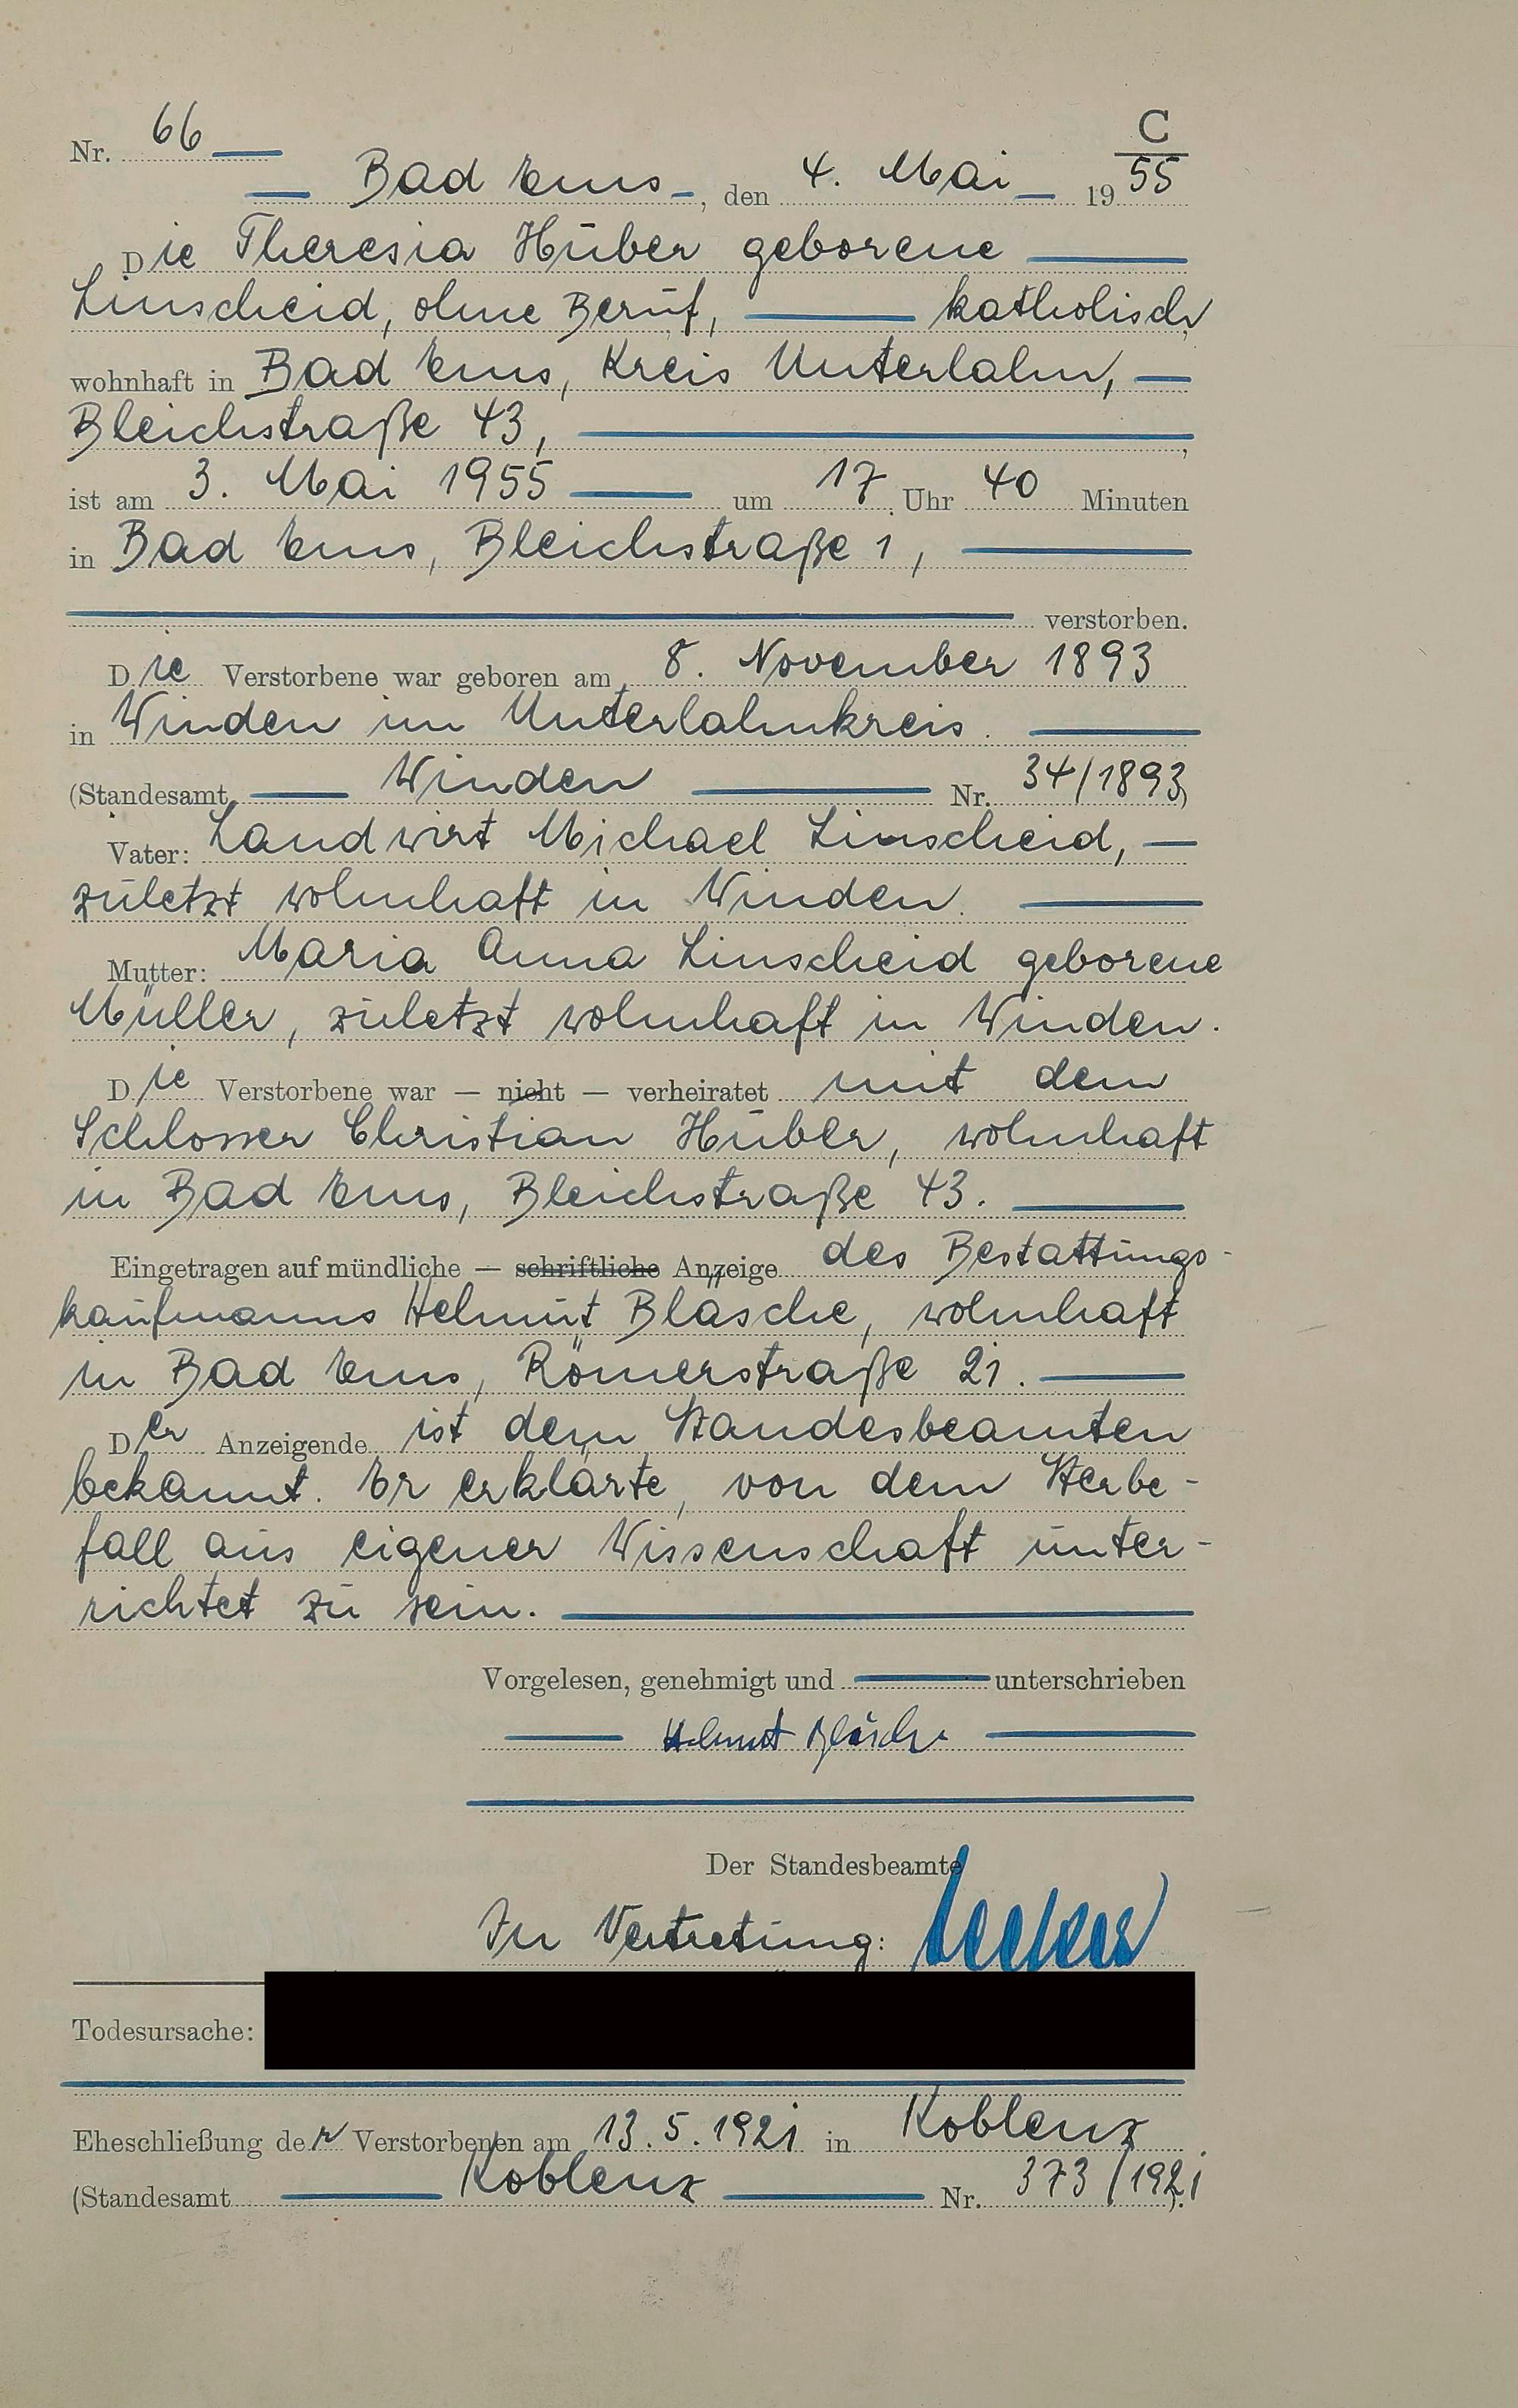 C
Nr. 66
Bad Ems, den 4. Mai 1955
Die Theresia Huber geborene
Linscheid, ohne Beruf, katholisch
wohnhaft in Bad Ems, Kreis Unterlahn,
Bleichstraße 43, ,
ist am 3. Mai 1955 um 17 Uhr 40 Minuten
in Bad Ems, Bleichstraße 1,
verstorben.
Die Verstorbene war geboren am 8. November 1893
in Winden im Unterlahnkreis.
(Standesamt Winden Nr. 34/1893)
Vater: Landwirt Michael Linscheid,
zuletzt wohnhaft in Winden.
Mutter: Maria Anna Linscheid geborene
Müller, zuletzt wohnhaft in Winden.
Die Verstorbene war — nicht — verheiratet mit dem
Schlosser Christian Huber, wohnhaft
in Bad Ems, Bleichstraße 43.
Eingetragen auf mündliche — schriftliche Anzeige des Bestattungs-
kaufmanns Helmut Bläsche, wohnhaft
in Bad Ems, Römerstraße 21.
Der Anzeigende ist dem Standesbeamten
bekannt. Er erklärte, von dem Sterbe-
fall aus eigener Wissenschaft unter-
richtet zu sein.
Vorgelesen, genehmigt und unterschrieben
Helmut Bläsche
Der Standesbeamte
In Vertretung:
Todesursache:
Eheschließung der Verstorbenen am 13.5.1921 in Koblenz
(Standesamt Koblenz Nr. 373/1921).